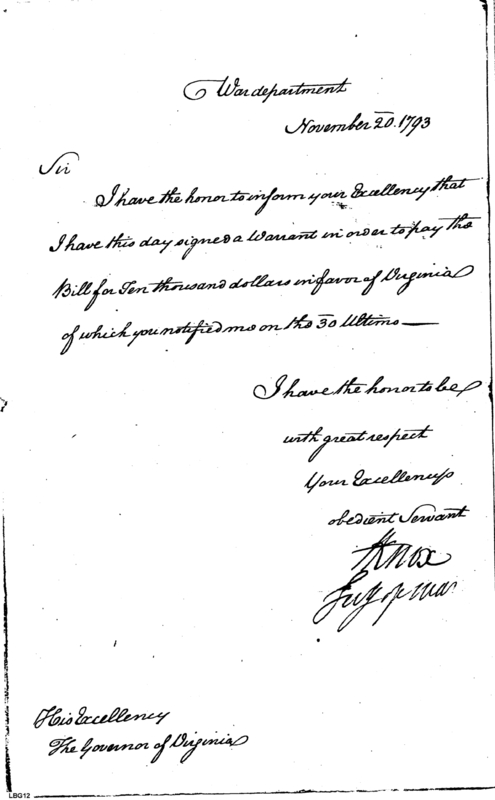 War department
November 20. 1793
Sir
I have the honor to inform your Excellency that
I have this day signed a Warrant in order to pay the
Bill for Ten thousand dollars in favor of Virginia
of which you notified me on the 30 Ultimo —
I have the honor to be
with great respect
Your Excellencys
obedient Servant
HKnox
Secy of War
His Excellency
The Governor of Virginia
LBG12